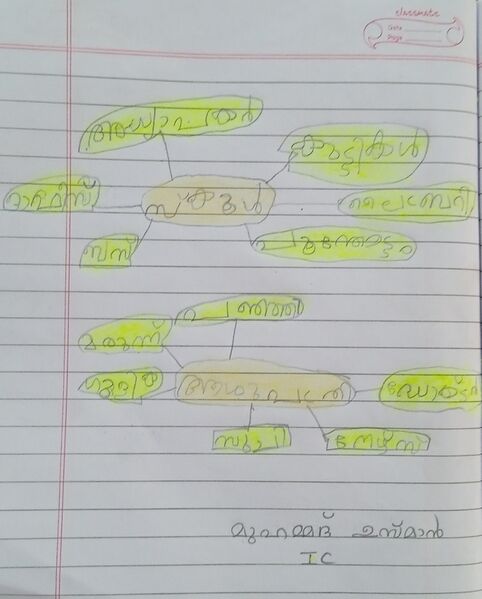 classmate
Date
Page
അധ്യാപകർ
കുട്ടികൾ
ഓഫീസ്
സ്കൂൾ
ലൈബ്രറി
ബസ്
പൂന്തോട്ടം
പഞ്ഞി
മരുന്ന്
ഗുളിക
ആശുപത്രി
ഡോക്ടർ
സൂചി
നേഴ്സ്
മുഹമ്മദ് ഉസ്മാൻ
IC